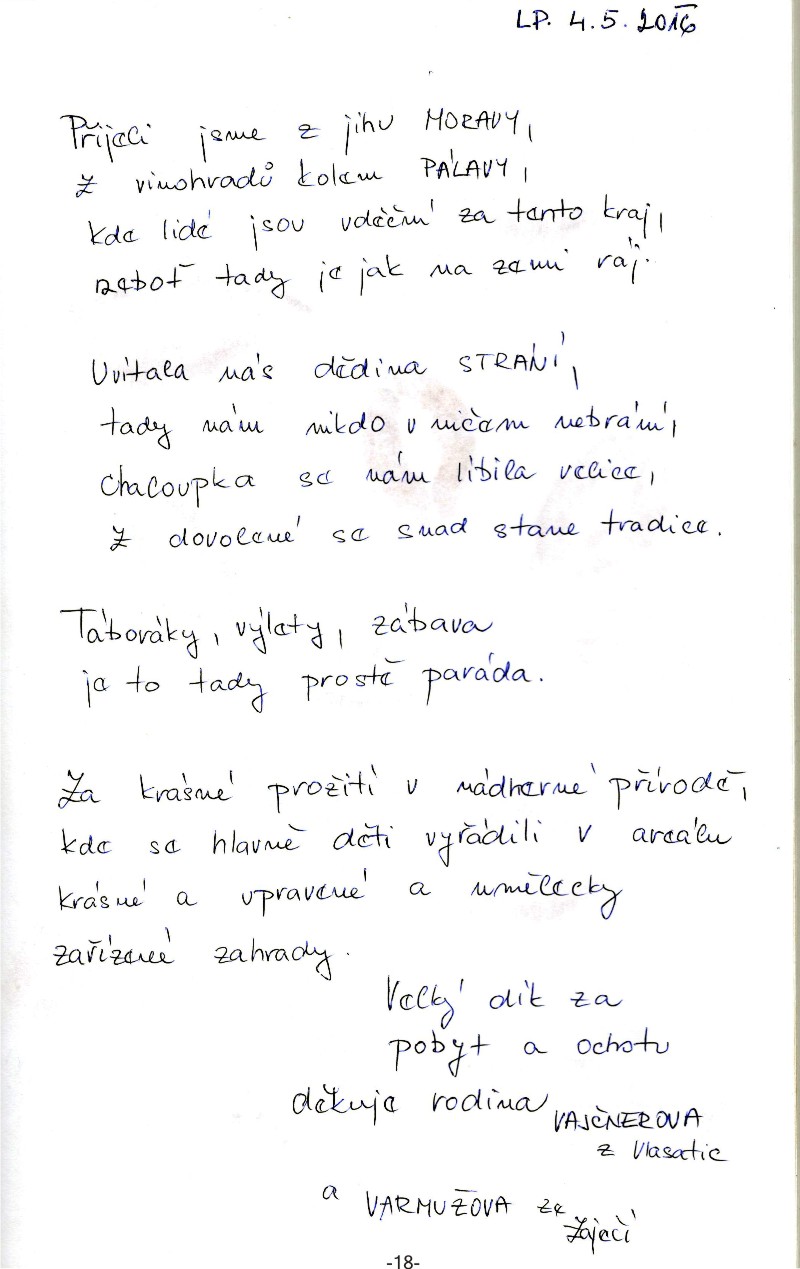 LP. 4.5.2016
Přijeli jsme z jihu MORAVY,
z vinohradů kolem PÁLAVY,
kde lidé jsou vděční za tento kraj,
neboť tady je jak na zemi ráj.
Uvítala nás dědina STRÁNÍ,
tady nám nikdo v ničem nebrání,
chaloupka se nám líbila velice,
z dovolené se snad stane tradice.
Táboráky, výlety, zábava
je to tady prostě paráda.
Za krásné prožití v nádherné přírodě,
kde se hlavně děti vyřádili v areálu
krásné a upravené a umělecky
zařízené zahrady.
Velký dík za
pobyt a ochotu
děkuje rodina VAJČNEROVA
z Vlasatic
a VARMUŽOVA ze
Zaječí
-18-